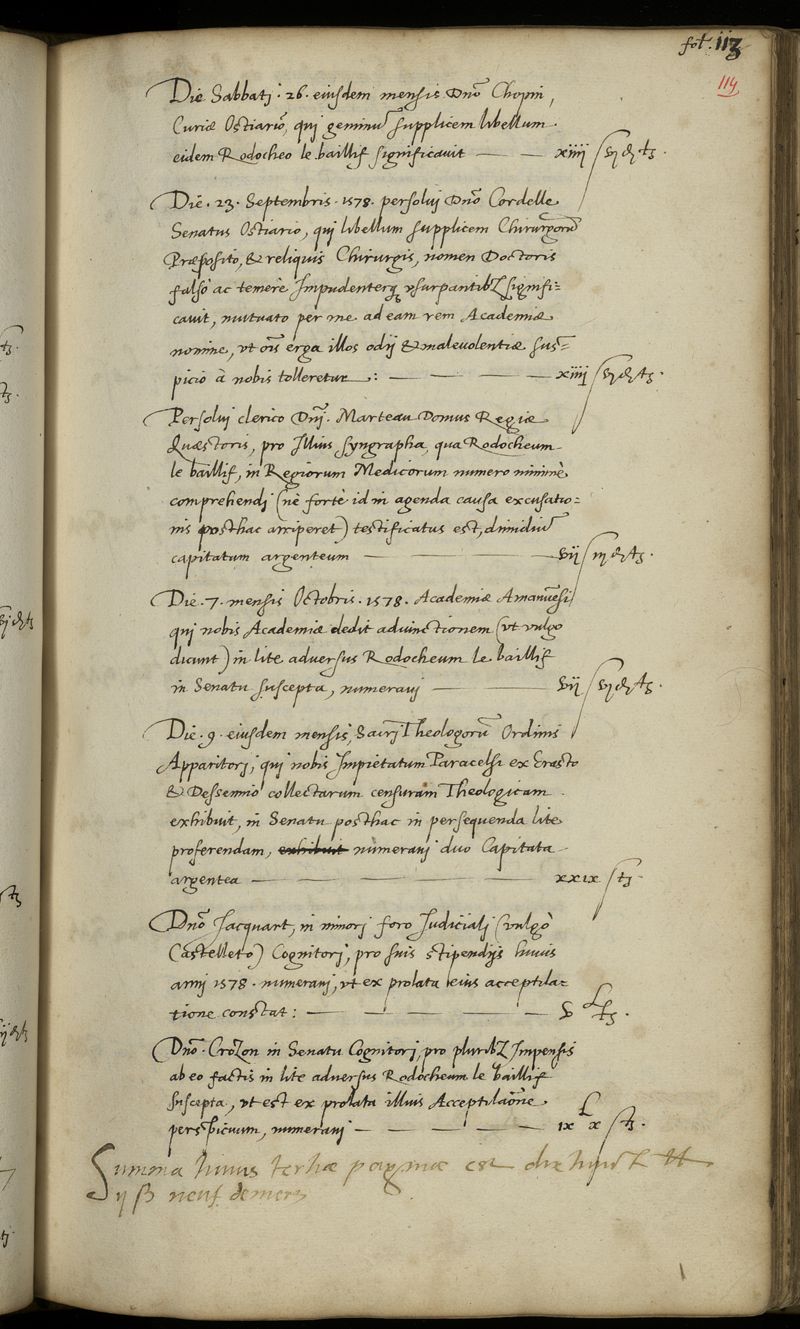 fol. 113
114
Die Sabbatj . 26 . eiusdem mensis Dno Chopin,
Curiæ Ostiario, quj geminu supplicem libellum
eidem Rodocheo le baillif significauit — — xiiij ſ vj d t.
Die . 23 . Septembris . 1578 . persoluj Dno Cordelle
Senatus Ostiario, quj libellum supplicem Chirurgoru
Præposito, & reliquis Chirurgis, nomen Doctoris
falso ac temerè Impudenterq vsurpantib signifi=
cauit, mutuato per me ad eam rem Academiæ
nomine, vt ois erga illos odij & maleuolentiæ sus=
picio à nobis tolleretur : — — — — xiiij ſ vj d t.
Persoluj clerico Dnj . Marteau Domus Regiæ
Quæstoris, pro Illius syngrapha, qua Rodocheum
le baillif, in Regiorum Medicorum numero minimè
comprehendj (nè fortè id in agenda causa excusatio=
nis posthac arriperet) testificatus est, dimidiu
capitatum argenteum — — — — vij ſ iij d t.
Die . 7 . mensis Octobris . 1578 . Academiæ Amanuesi,
quj nobis Academiæ dedit adiunctionem (vt vulgo
dicunt) in lite aduersus Rodocheum le baillif
in Senatu suscepta, numerauj — — vij ſ vj d t.
Die . 9 . eiusdem mensis, Sacrj Theologoru Ordinis
Apparitorj, quj nobis Impietatum Paracelsi ex Erasto
& Dessennio collectarum censuram Theologicam
exhibuit, in Senatu posthac in persequenda lite
proferendam, exhibuit numerauj duo Capitata
argentea — — — — — xxix ſ t.
Dno Jacquart, in minorj foro Judicialj (vulgò
Castelleto) Cognitorj, pro suis stipendijs huius
annj 1578 . numerauj, vt ex prolata eius acceptila=
tione constat : — — — — — v L t.
Dno . Crozon in Senatu Cognitorj, pro plurib Impensis
ab eo factis in lite aduersus Rodocheum le baillif
suscepta, vt est ex prolata illius Acceptilaone
perspicuum, numerauj — — — — ix L x ſ t.
Summa huius tertiæ paginæ est
ij ß neuf deniers